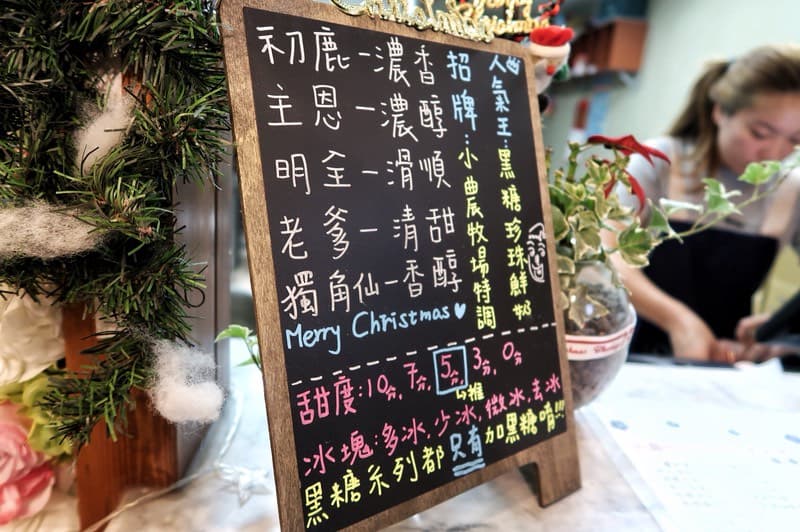 初鹿－濃香
主恩－濃醇
明全－滑順
老爹－清甜
獨角仙－香醇
Merry Christmas
招牌：小農牧場特調
人氣王：黑糖珍珠鮮奶
甜度：10分, 7分, 5分, 3分, 0分
↳推
冰塊：多冰, 少冰, 微冰, 去冰
黑糖系列都只有加黑糖唷!!!